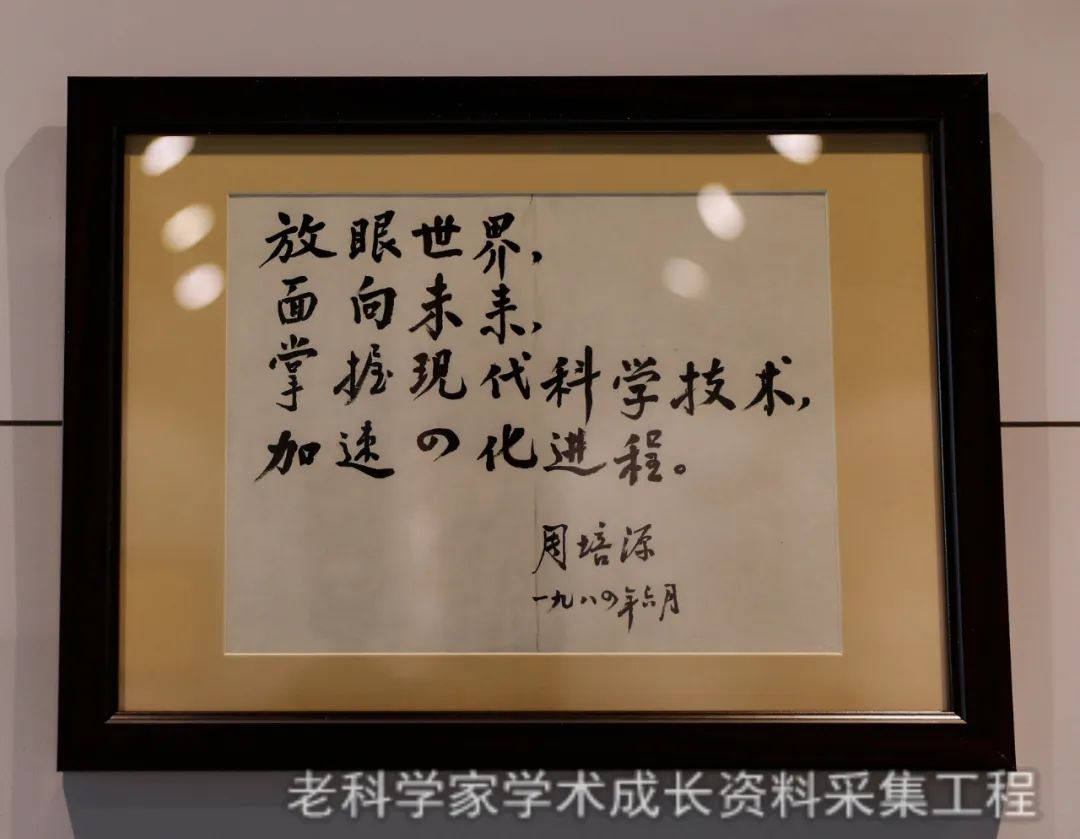 放眼世界,
面向未来,
掌握现代科学技术,
加速四化进程。
周培源
一九八四年六月
老科学家学术成长资料采集工程